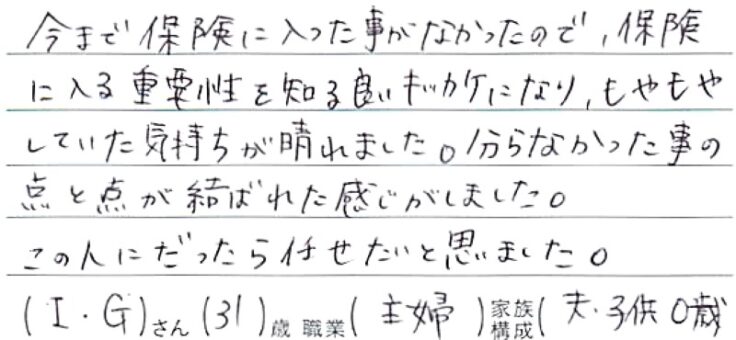 今まで保険に入った事がなかったので、保険
に入る重要性を知る良いキッカケになり、もやもや
していた気持ちが晴れました。分らなかった事の
点と点が結ばれた感じがしました。
この人にだったら任せたいと思いました。
(I・G)さん(31)歳 職業(主婦)家族構成(夫・子供0歳